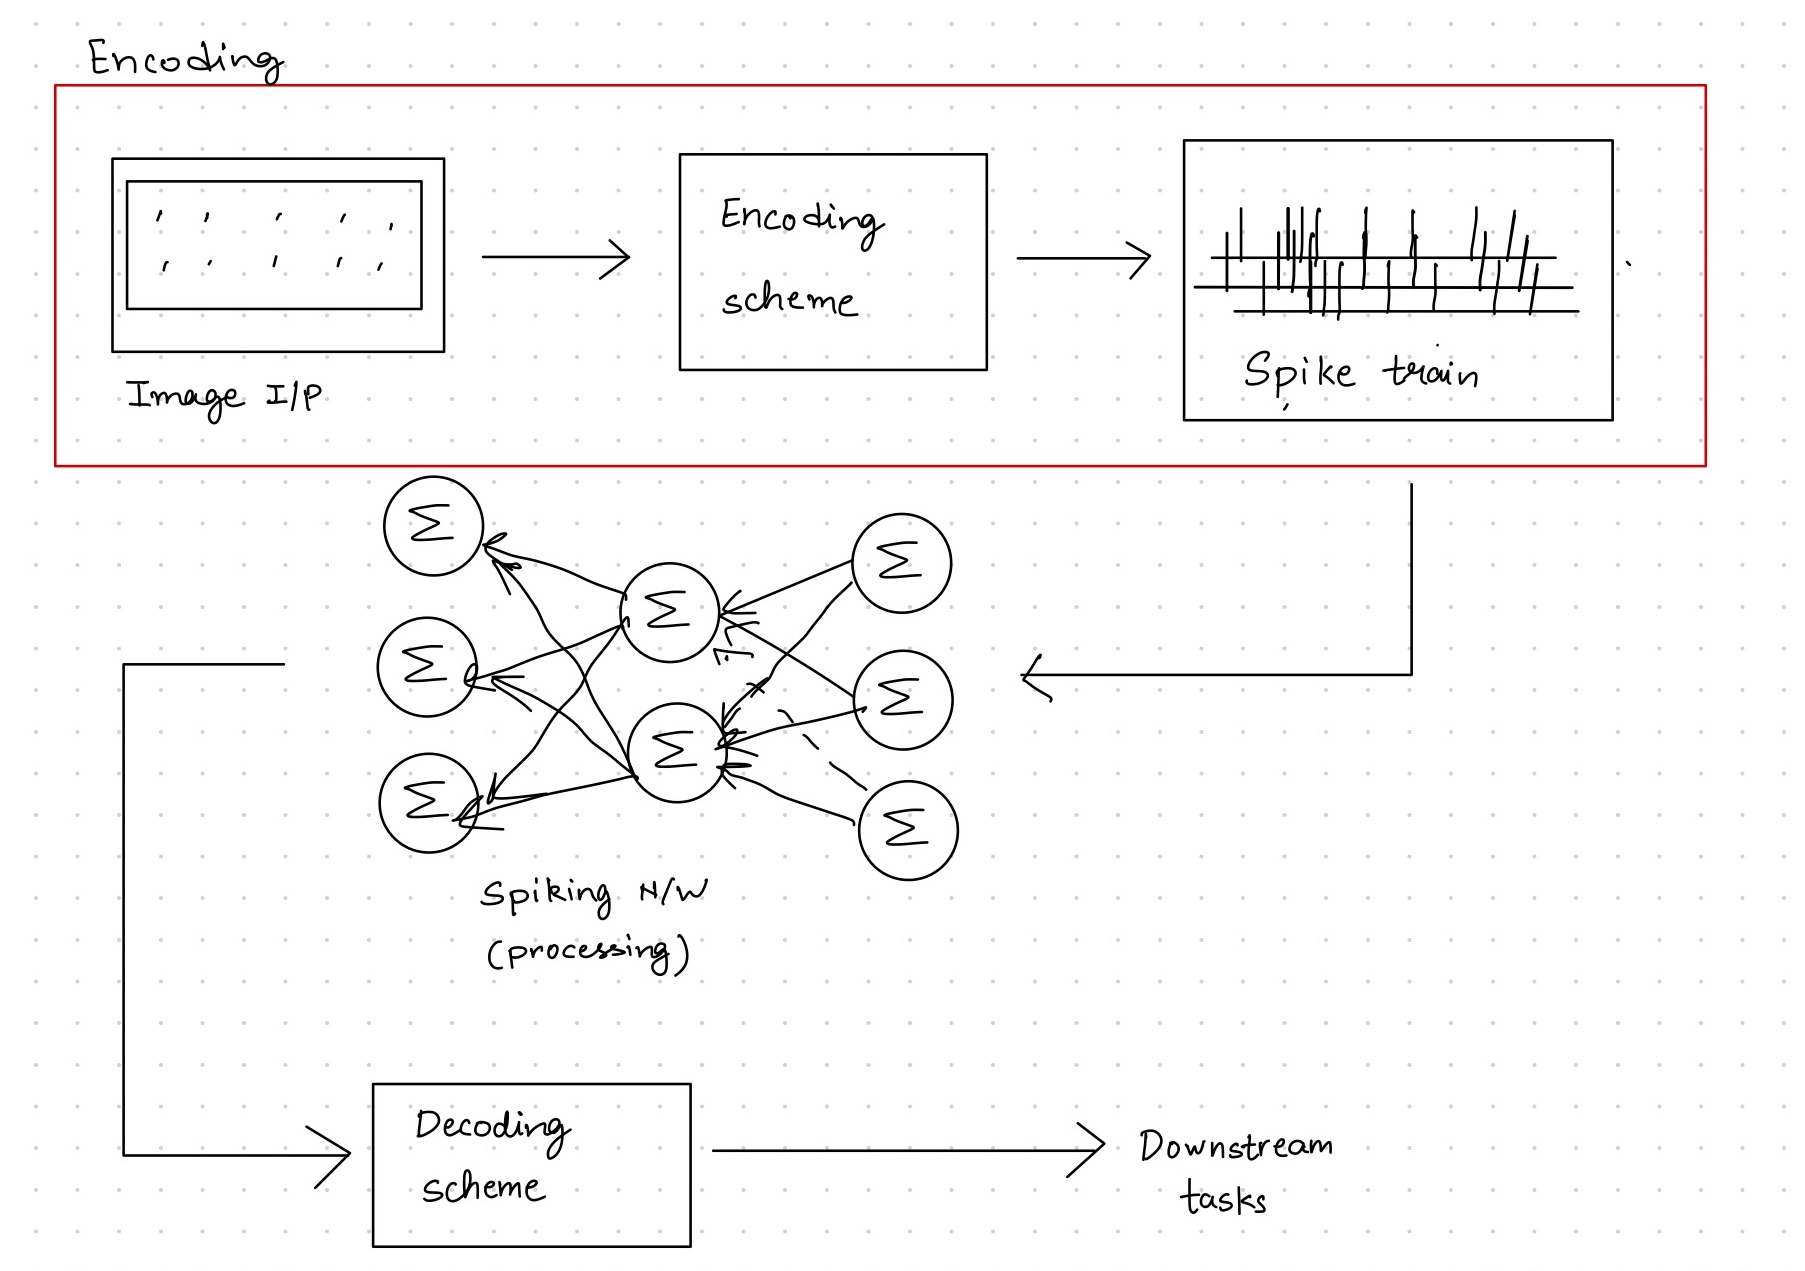 Encoding
Image I/P
Encoding
scheme
Spike train
Σ
Σ
Σ
Σ
Σ
Σ
Σ
Σ
Spiking N/W
(processing)
Decoding
scheme
Downstream
tasks